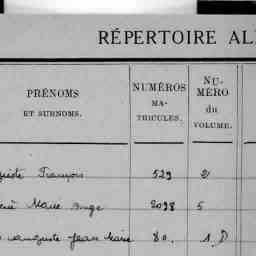 RÉPERTOIRE AL
PRÉNOMS
ET SURNOMS.
NUMÉROS
MA-
TRICULES.
NU-
MÉRO
du
VOLUME.
François 529 2
Marie Ange 2098 5
auguste Jean Marie 80. 1 D